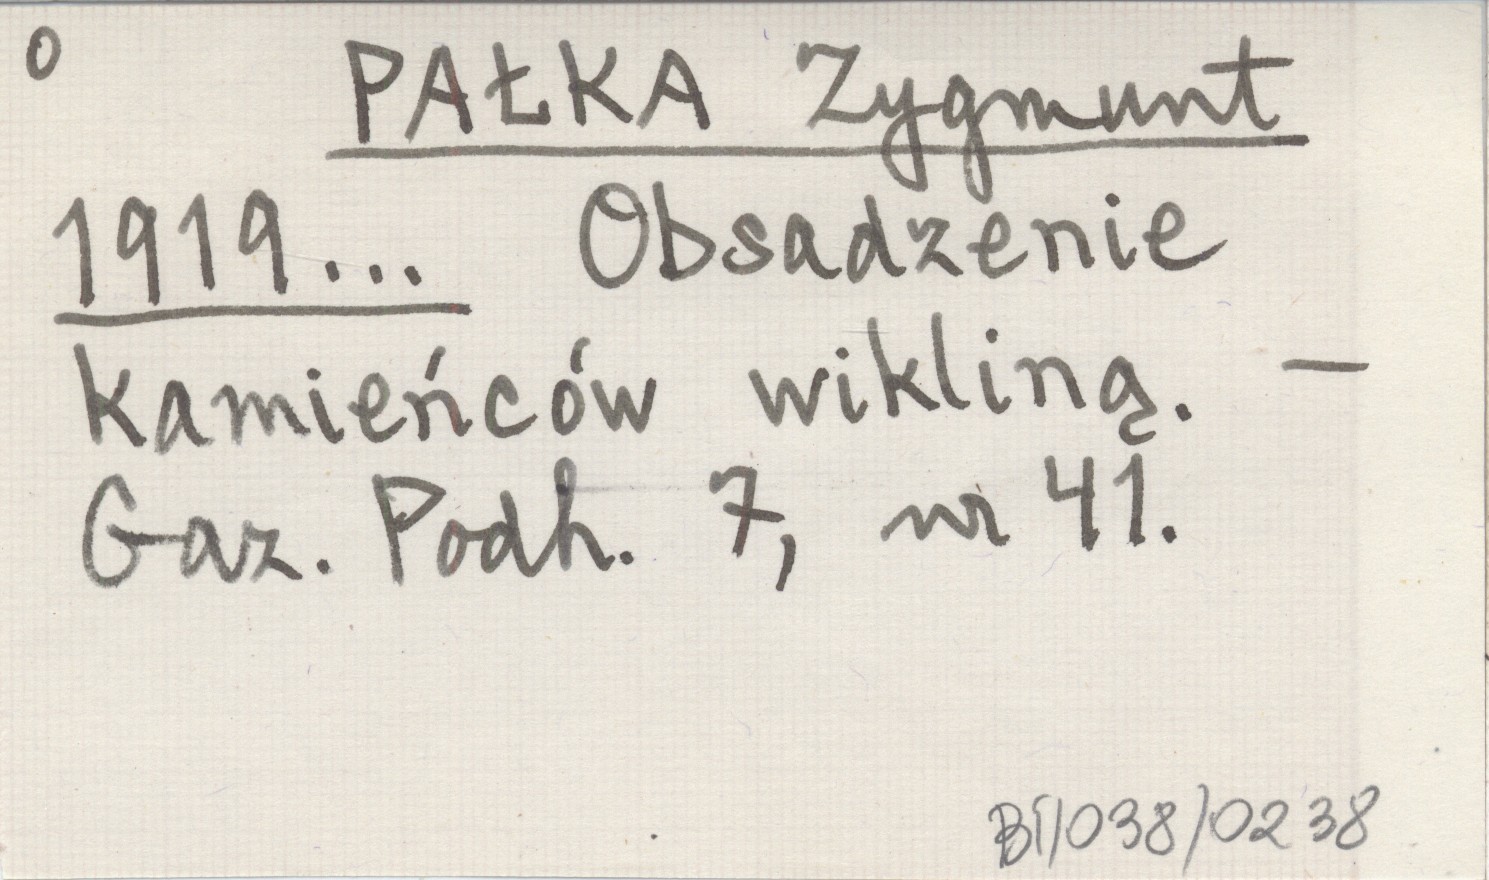 0
PAŁKA Zygmunt
1919... Obsadzenie
kamieńców wikliną. —
Gaz. Podh. 7, nr 41.
BI/038/0238